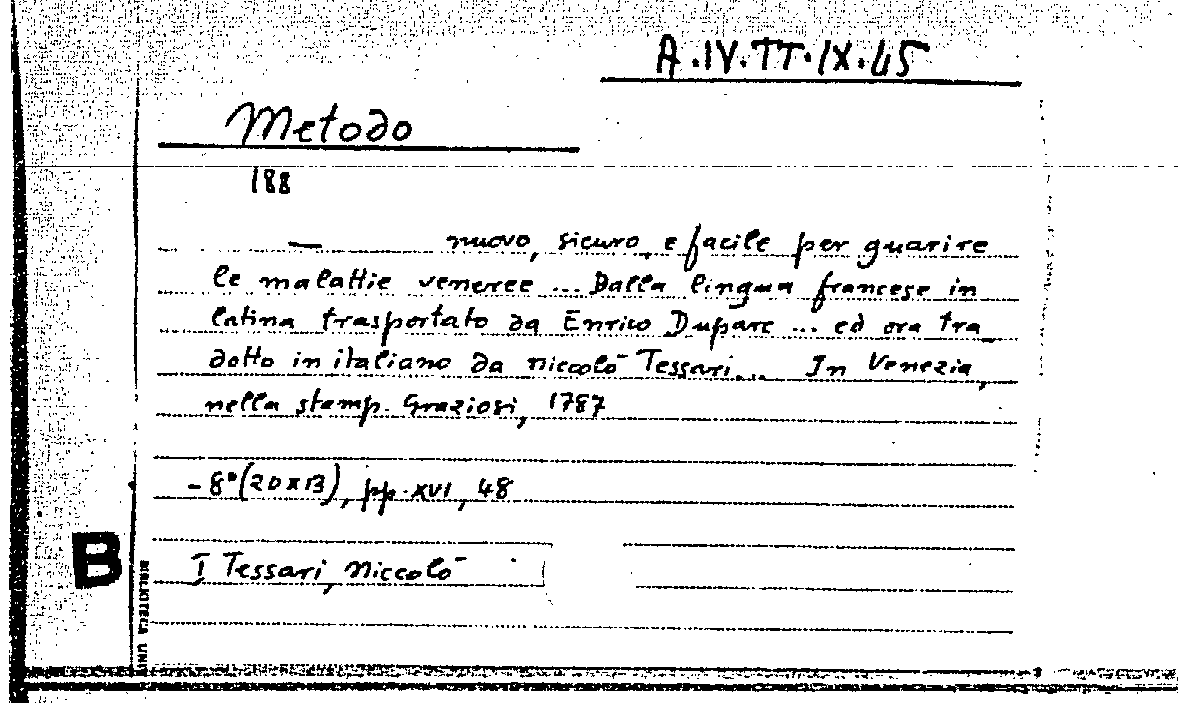 A.IV.TT.IX.45
Metodo
188
— nuovo, sicuro, e facile per guarire
le malattie veneree ... Dalla lingua francese in
latina trasportato da Enrico Duparc ... ed ora tra
dotto in italiano da Niccolò Tessari... In Venezia,
nella stamp. Graziosi, 1787
- 8° (20x13), pp. XVI, 48
B
I Tessari, Niccolò
BIBLIOTECA UNIV